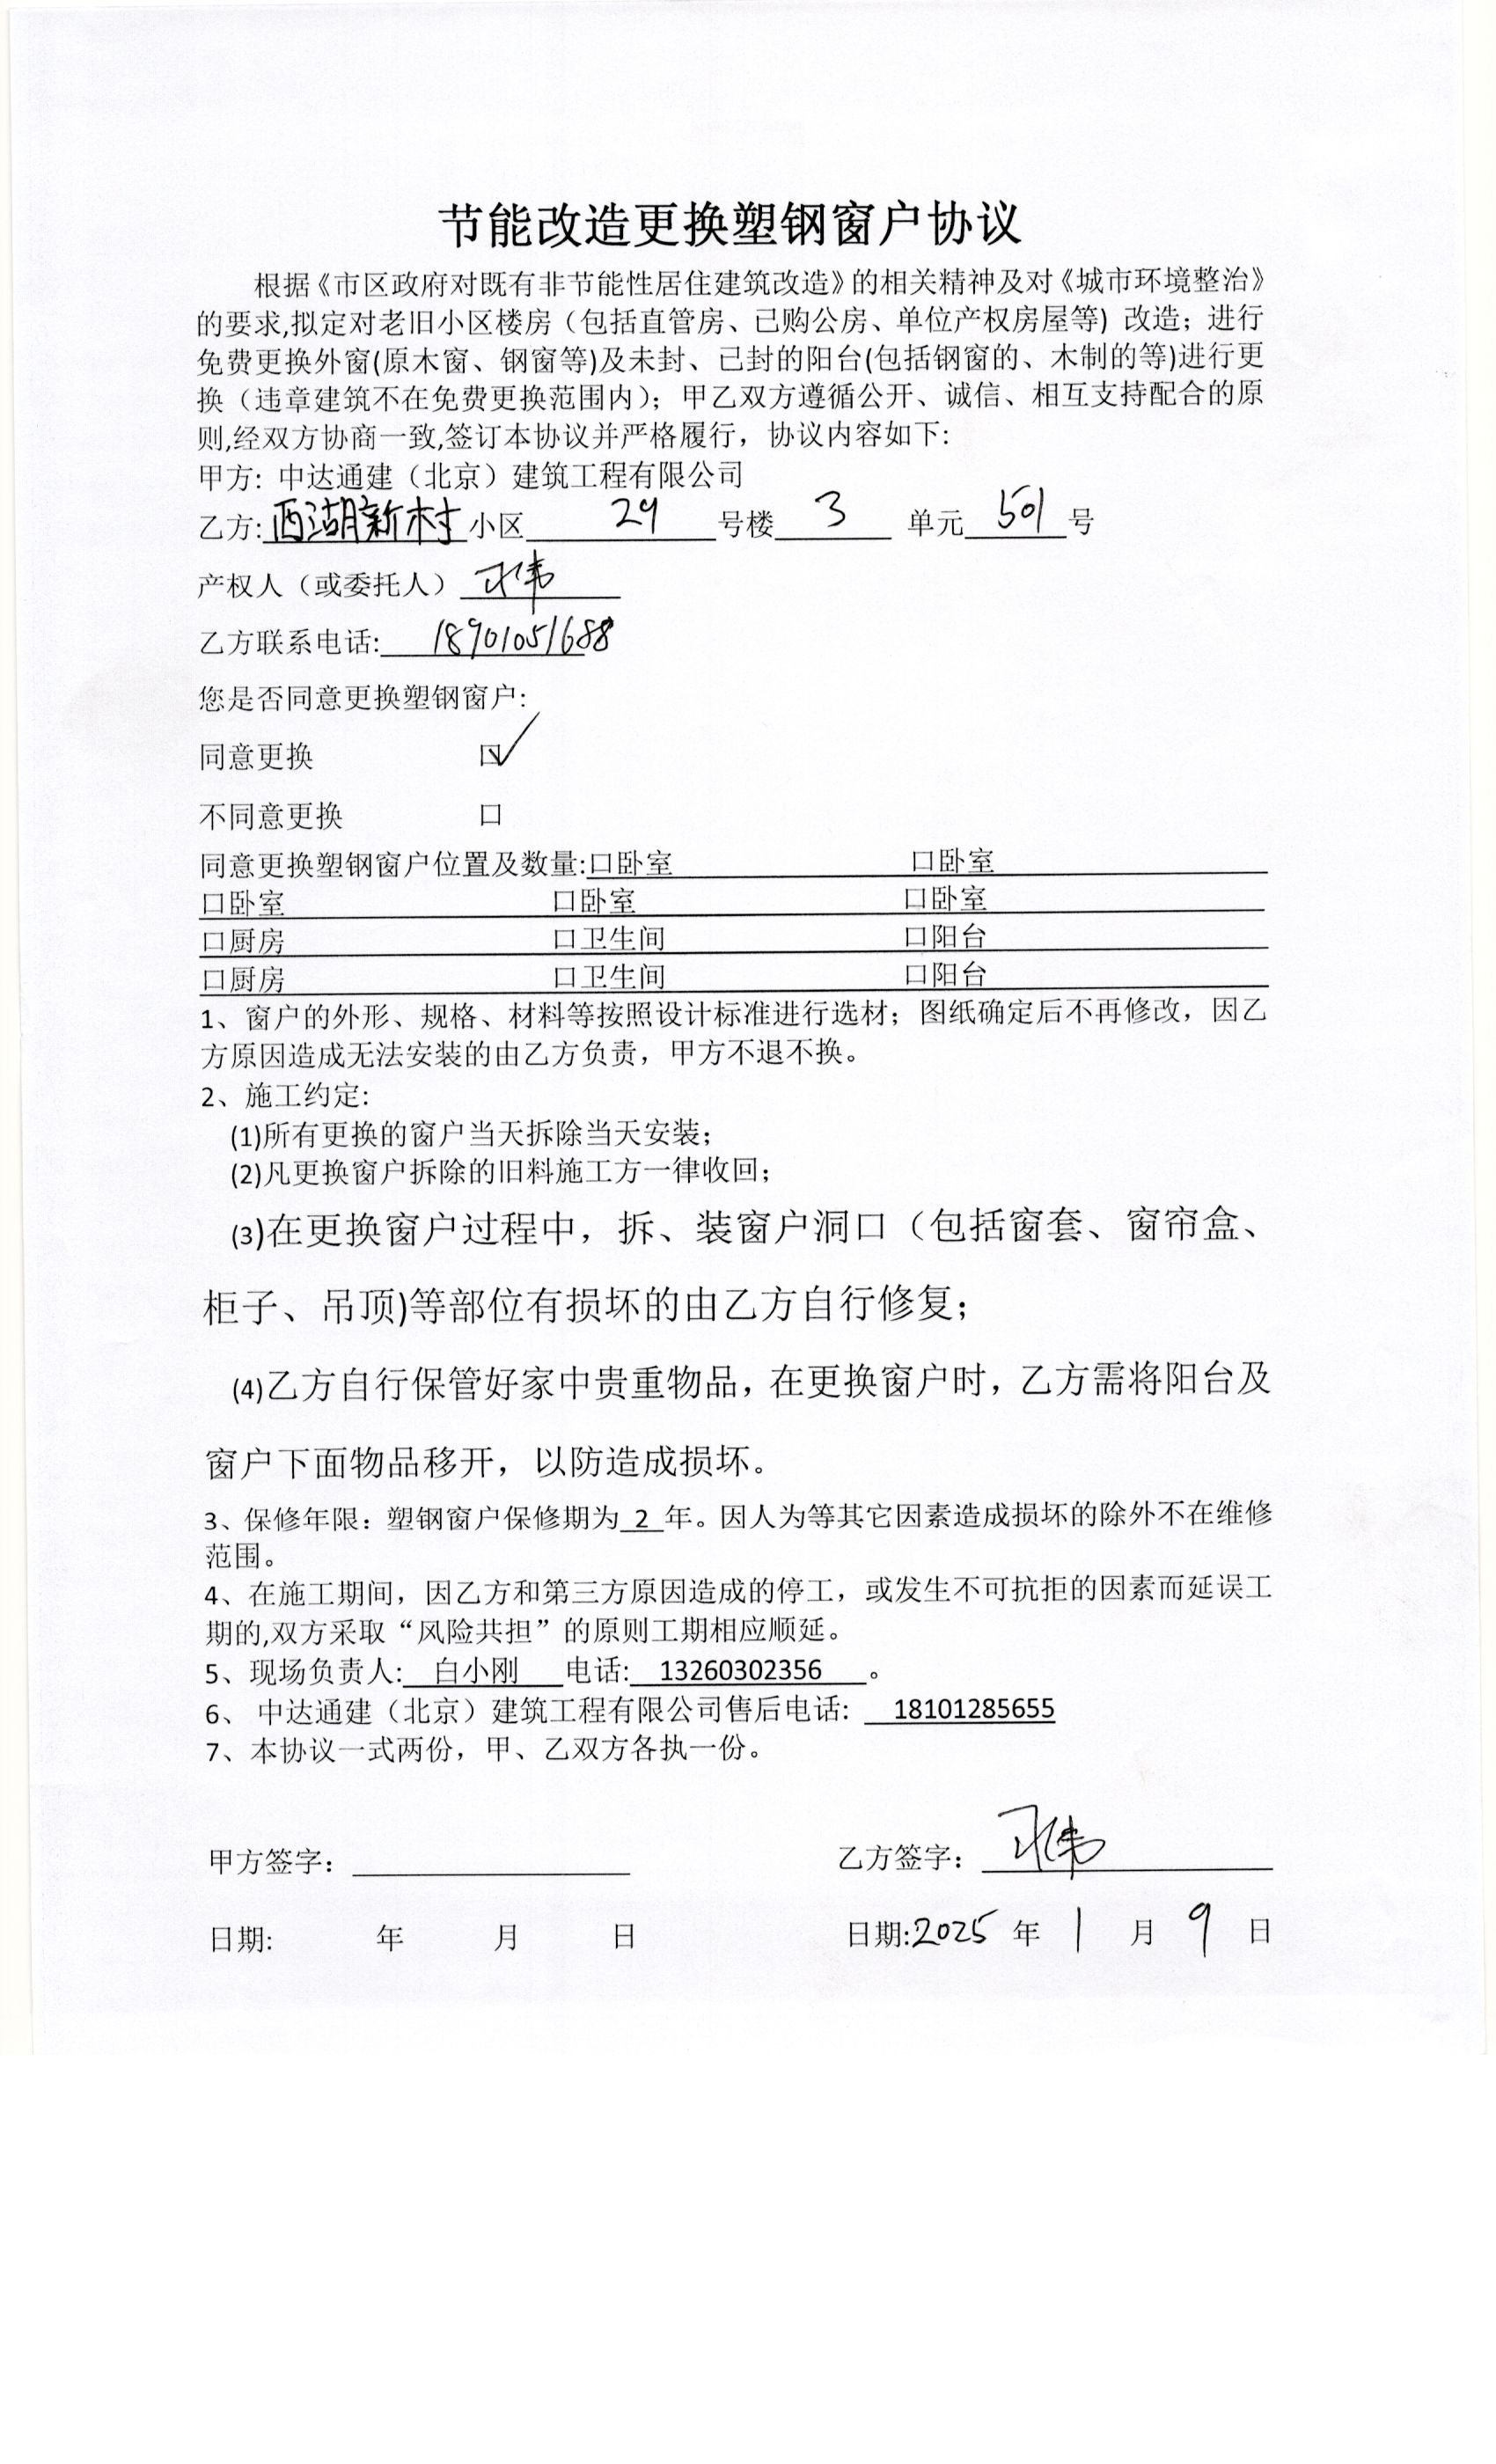 节能改造更换塑钢窗户协议
根据《市区政府对既有非节能性居住建筑改造》的相关精神及对《城市环境整治》
的要求,拟定对老旧小区楼房（包括直管房、已购公房、单位产权房屋等）改造；进行
免费更换外窗(原木窗、钢窗等)及未封、已封的阳台(包括钢窗的、木制的等)进行更
换（违章建筑不在免费更换范围内）；甲乙双方遵循公开、诚信、相互支持配合的原
则,经双方协商一致,签订本协议并严格履行，协议内容如下:
甲方: 中达通建（北京）建筑工程有限公司
乙方: 西湖新村 小区 29 号楼 3 单元 501 号
产权人（或委托人）
乙方联系电话: 18901051688
您是否同意更换塑钢窗户:
同意更换 ☑
不同意更换 口
同意更换塑钢窗户位置及数量:口卧室 口卧室
口卧室 口卧室 口卧室
口厨房 口卫生间 口阳台
口厨房 口卫生间 口阳台
1、窗户的外形、规格、材料等按照设计标准进行选材；图纸确定后不再修改，因乙
方原因造成无法安装的由乙方负责，甲方不退不换。
2、施工约定:
(1)所有更换的窗户当天拆除当天安装；
(2)凡更换窗户拆除的旧料施工方一律收回；
(3)在更换窗户过程中，拆、装窗户洞口（包括窗套、窗帘盒、
柜子、吊顶)等部位有损坏的由乙方自行修复；
(4)乙方自行保管好家中贵重物品，在更换窗户时，乙方需将阳台及
窗户下面物品移开，以防造成损坏。
3、保修年限：塑钢窗户保修期为 2 年。因人为等其它因素造成损坏的除外不在维修
范围。
4、在施工期间，因乙方和第三方原因造成的停工，或发生不可抗拒的因素而延误工
期的,双方采取“风险共担”的原则工期相应顺延。
5、现场负责人: 白小刚 电话: 13260302356 。
6、 中达通建（北京）建筑工程有限公司售后电话: 18101285655
7、本协议一式两份，甲、乙双方各执一份。
甲方签字： 乙方签字：
日期: 年 月 日 日期:2025 年 1 月 9 日